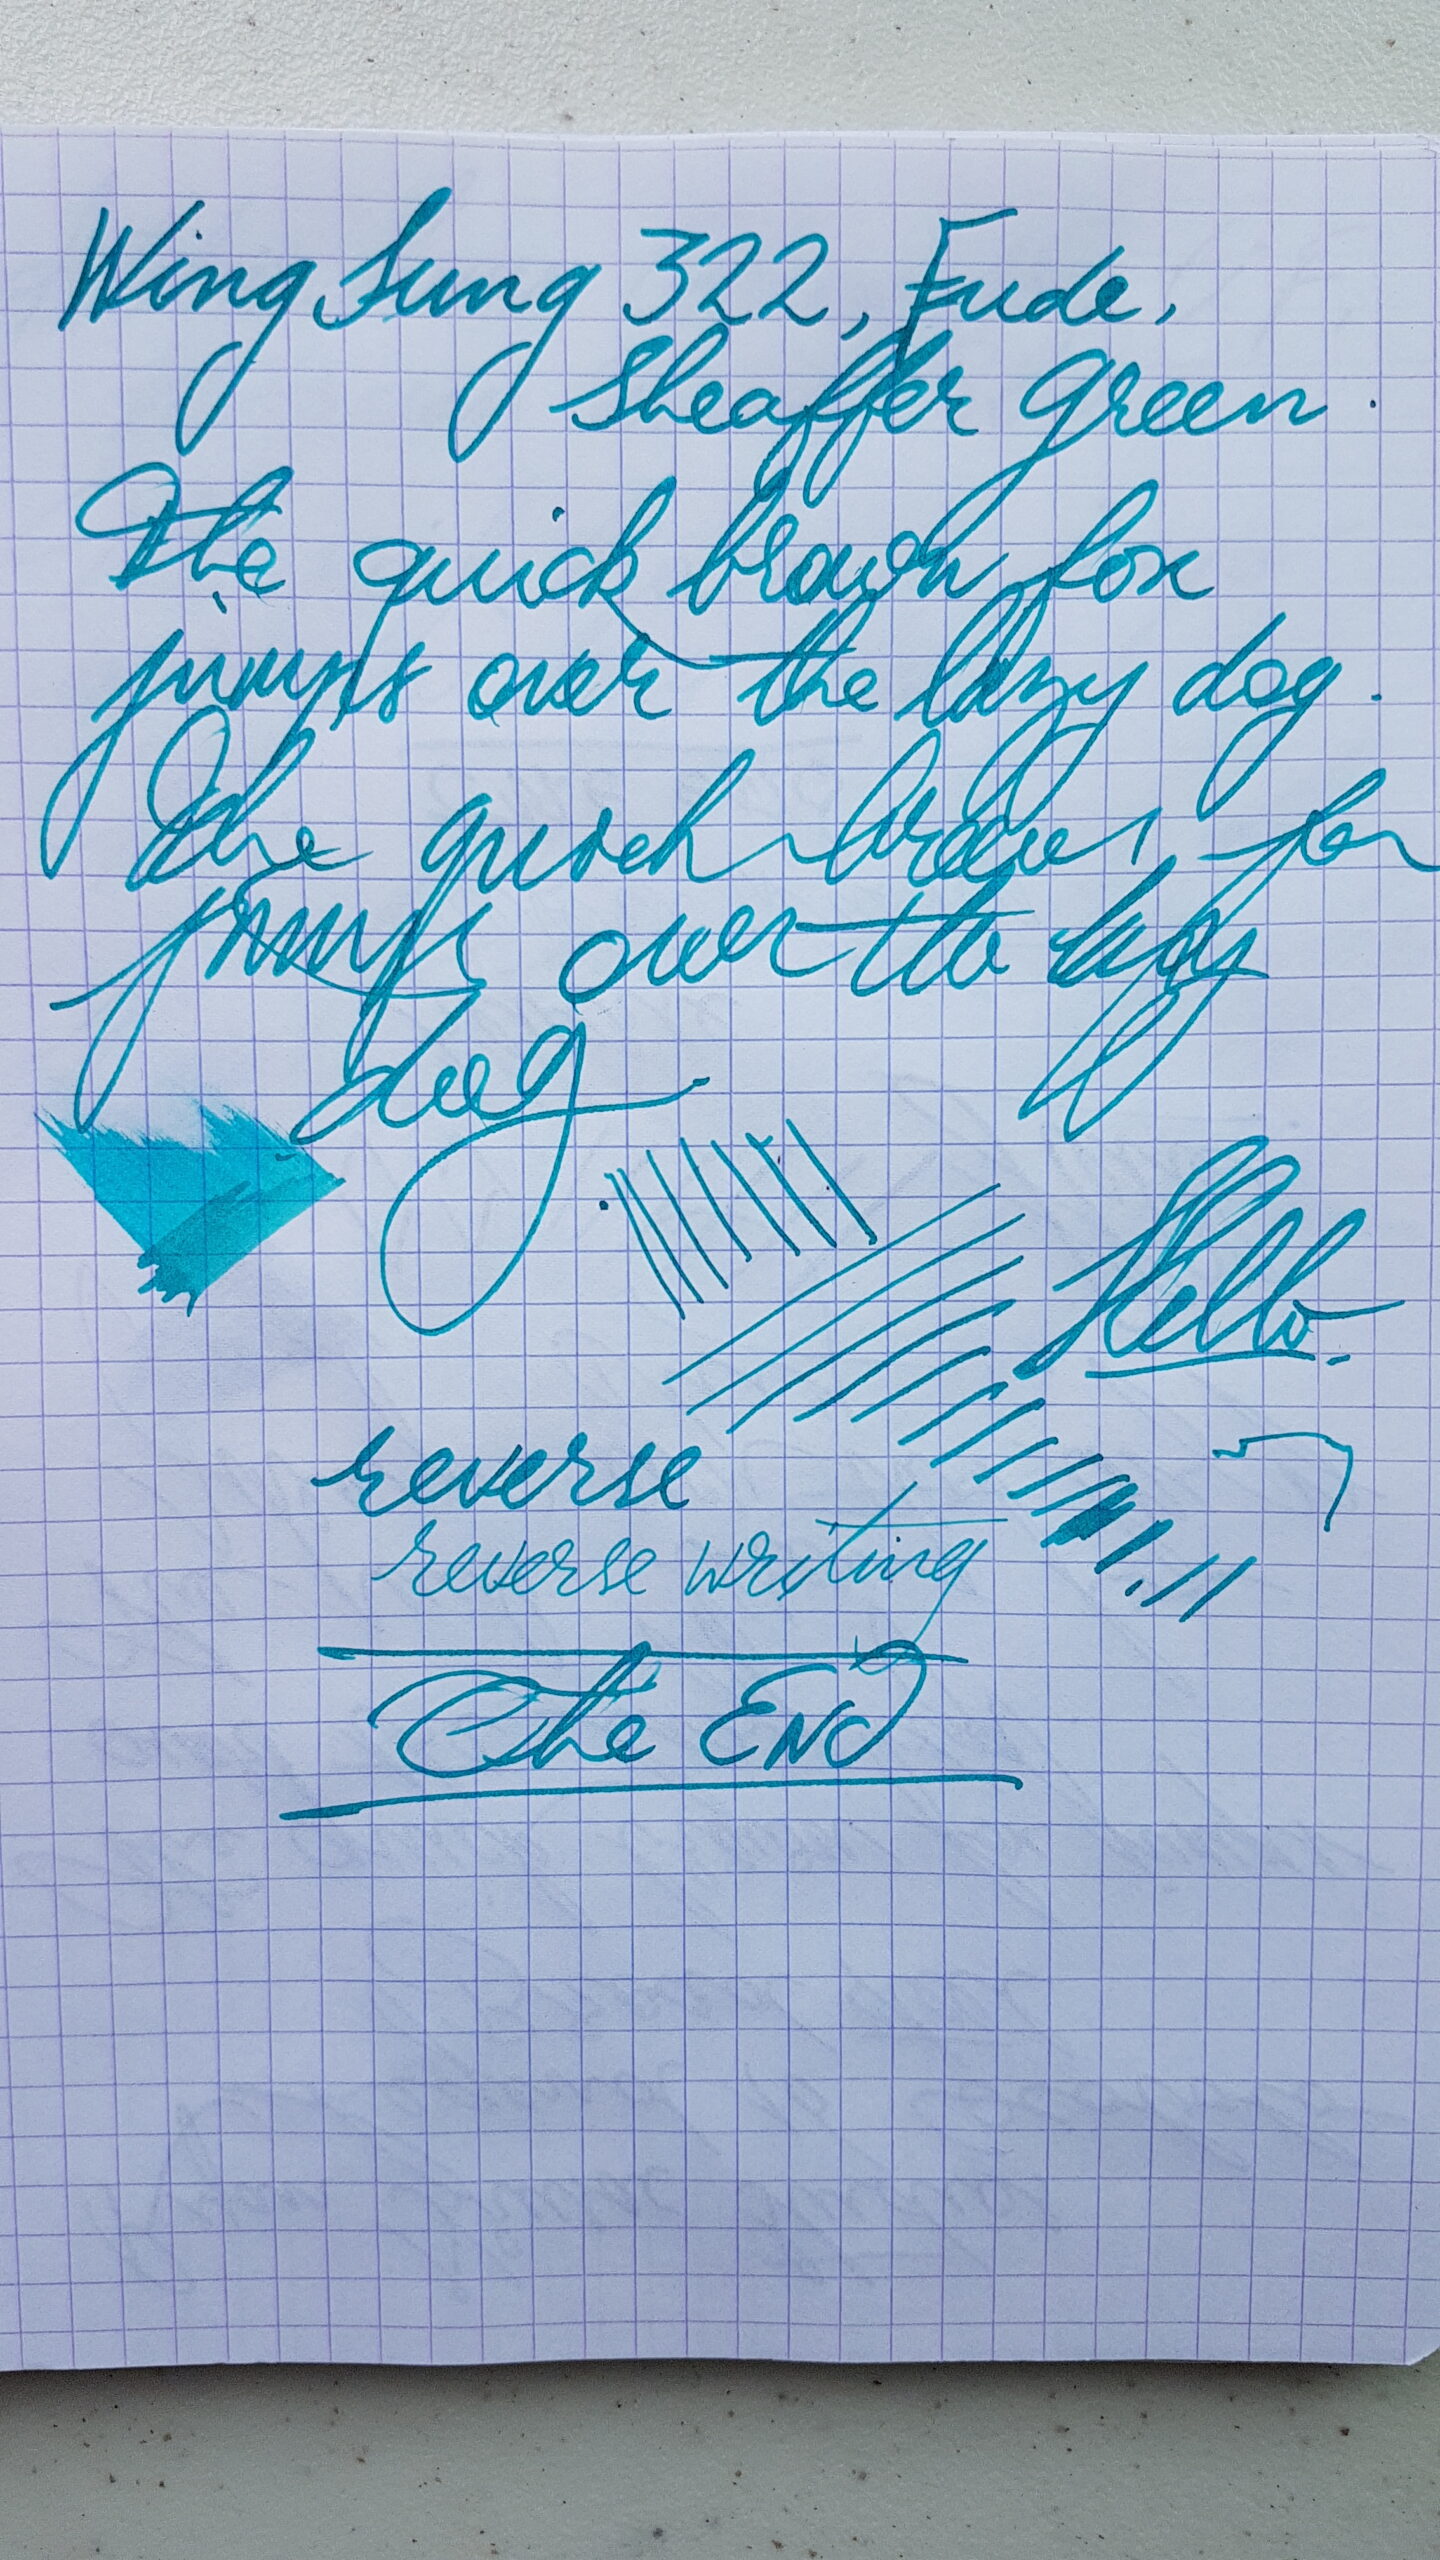 Wing Sung 322, Fude,
Sheaffer green.
The quick brown fox
jumps over the lazy dog.
The quick brown fox
jumps over the lazy
dog.
Hello.
reverse
reverse writing
The END